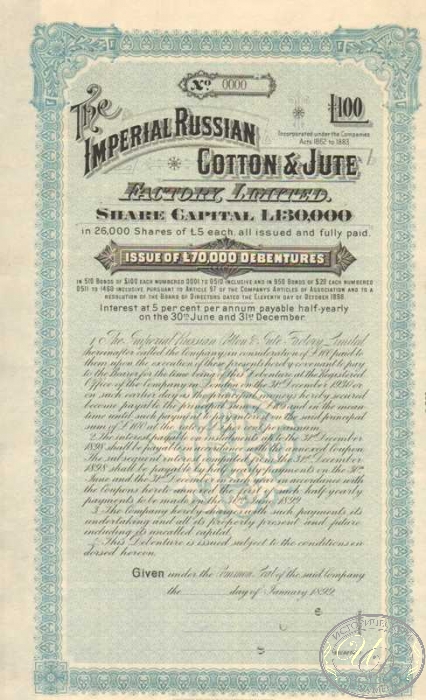 No 0000
£100
The
Imperial Russian
Incorporated under the Companies
Acts 1862 to 1883.
Cotton & Jute
Factory, Limited.
Share Capital £130,000
in 26,000 Shares of £5 each, all issued and fully paid.
ISSUE OF £70,000 DEBENTURES
IN 510 BONDS OF £100 EACH NUMBERED 0001 TO 0510 INCLUSIVE AND IN 950 BONDS OF £20 EACH NUMBERED
0511 TO 1460 INCLUSIVE, PURSUANT TO ARTICLE 97 OF THE COMPANY'S ARTICLES OF ASSOCIATION AND TO A
RESOLUTION OF THE BOARD OF DIRECTORS DATED THE ELEVENTH DAY OF OCTOBER 1898.
Interest at 5 per cent per annum payable half-yearly
on the 30th June and 31st December.
1. The Imperial Russian Cotton & Jute Factory Limited
hereinafter called the Company, in consideration of £100 paid to
them upon the execution of these presents hereby covenant to pay
to the Bearer for the time being of this Debenture at the Registered
Office of the Company in London on the 31st December 1930 or
on such earlier day as the principal moneys hereby secured
become payable the principal sum of £100 and in the mean
time until such payment to pay interest on the said principal
sum of £100 at the rate of 5 per cent per annum.
2. The interest payable on instalments up to the 31st December
1898 shall be payable in accordance with the annexed Coupon.
The subsequent interest counting from the 31st December
1898 shall be payable by half yearly payments on the 30th
June and the 31st December in each year in accordance with
the Coupons hereto annexed the first of such half-yearly
payments to be made on the 30th June 1899.
3. The Company hereby charges with such payments its
undertaking and all its property present and future
including its uncalled capital.
4. This Debenture is issued subject to the conditions en-
dorsed hereon.
Given under the Common Seal of the said Company
the day of January 1899.